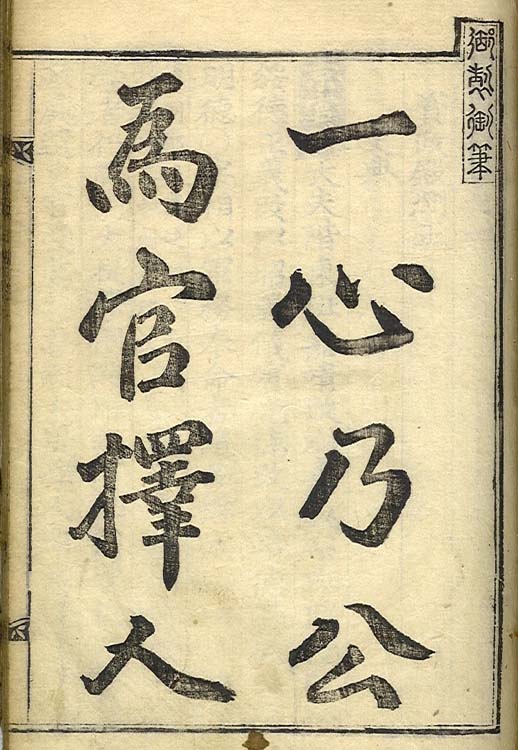 御製御筆
一心乃公
為官擇人